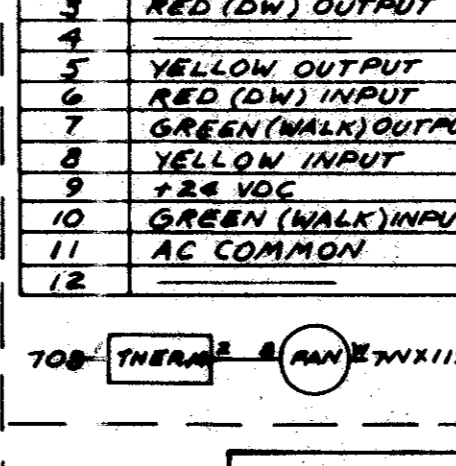 3 RED (DW) OUTPUT
4
5 YELLOW OUTPUT
6 RED (DW) INPUT
7 GREEN (WALK) OUTPU
8 YELLOW INPUT
9 +24 VDC
10 GREEN (WALK) INPU
11 AC COMMON
12
THERM 2 FAN